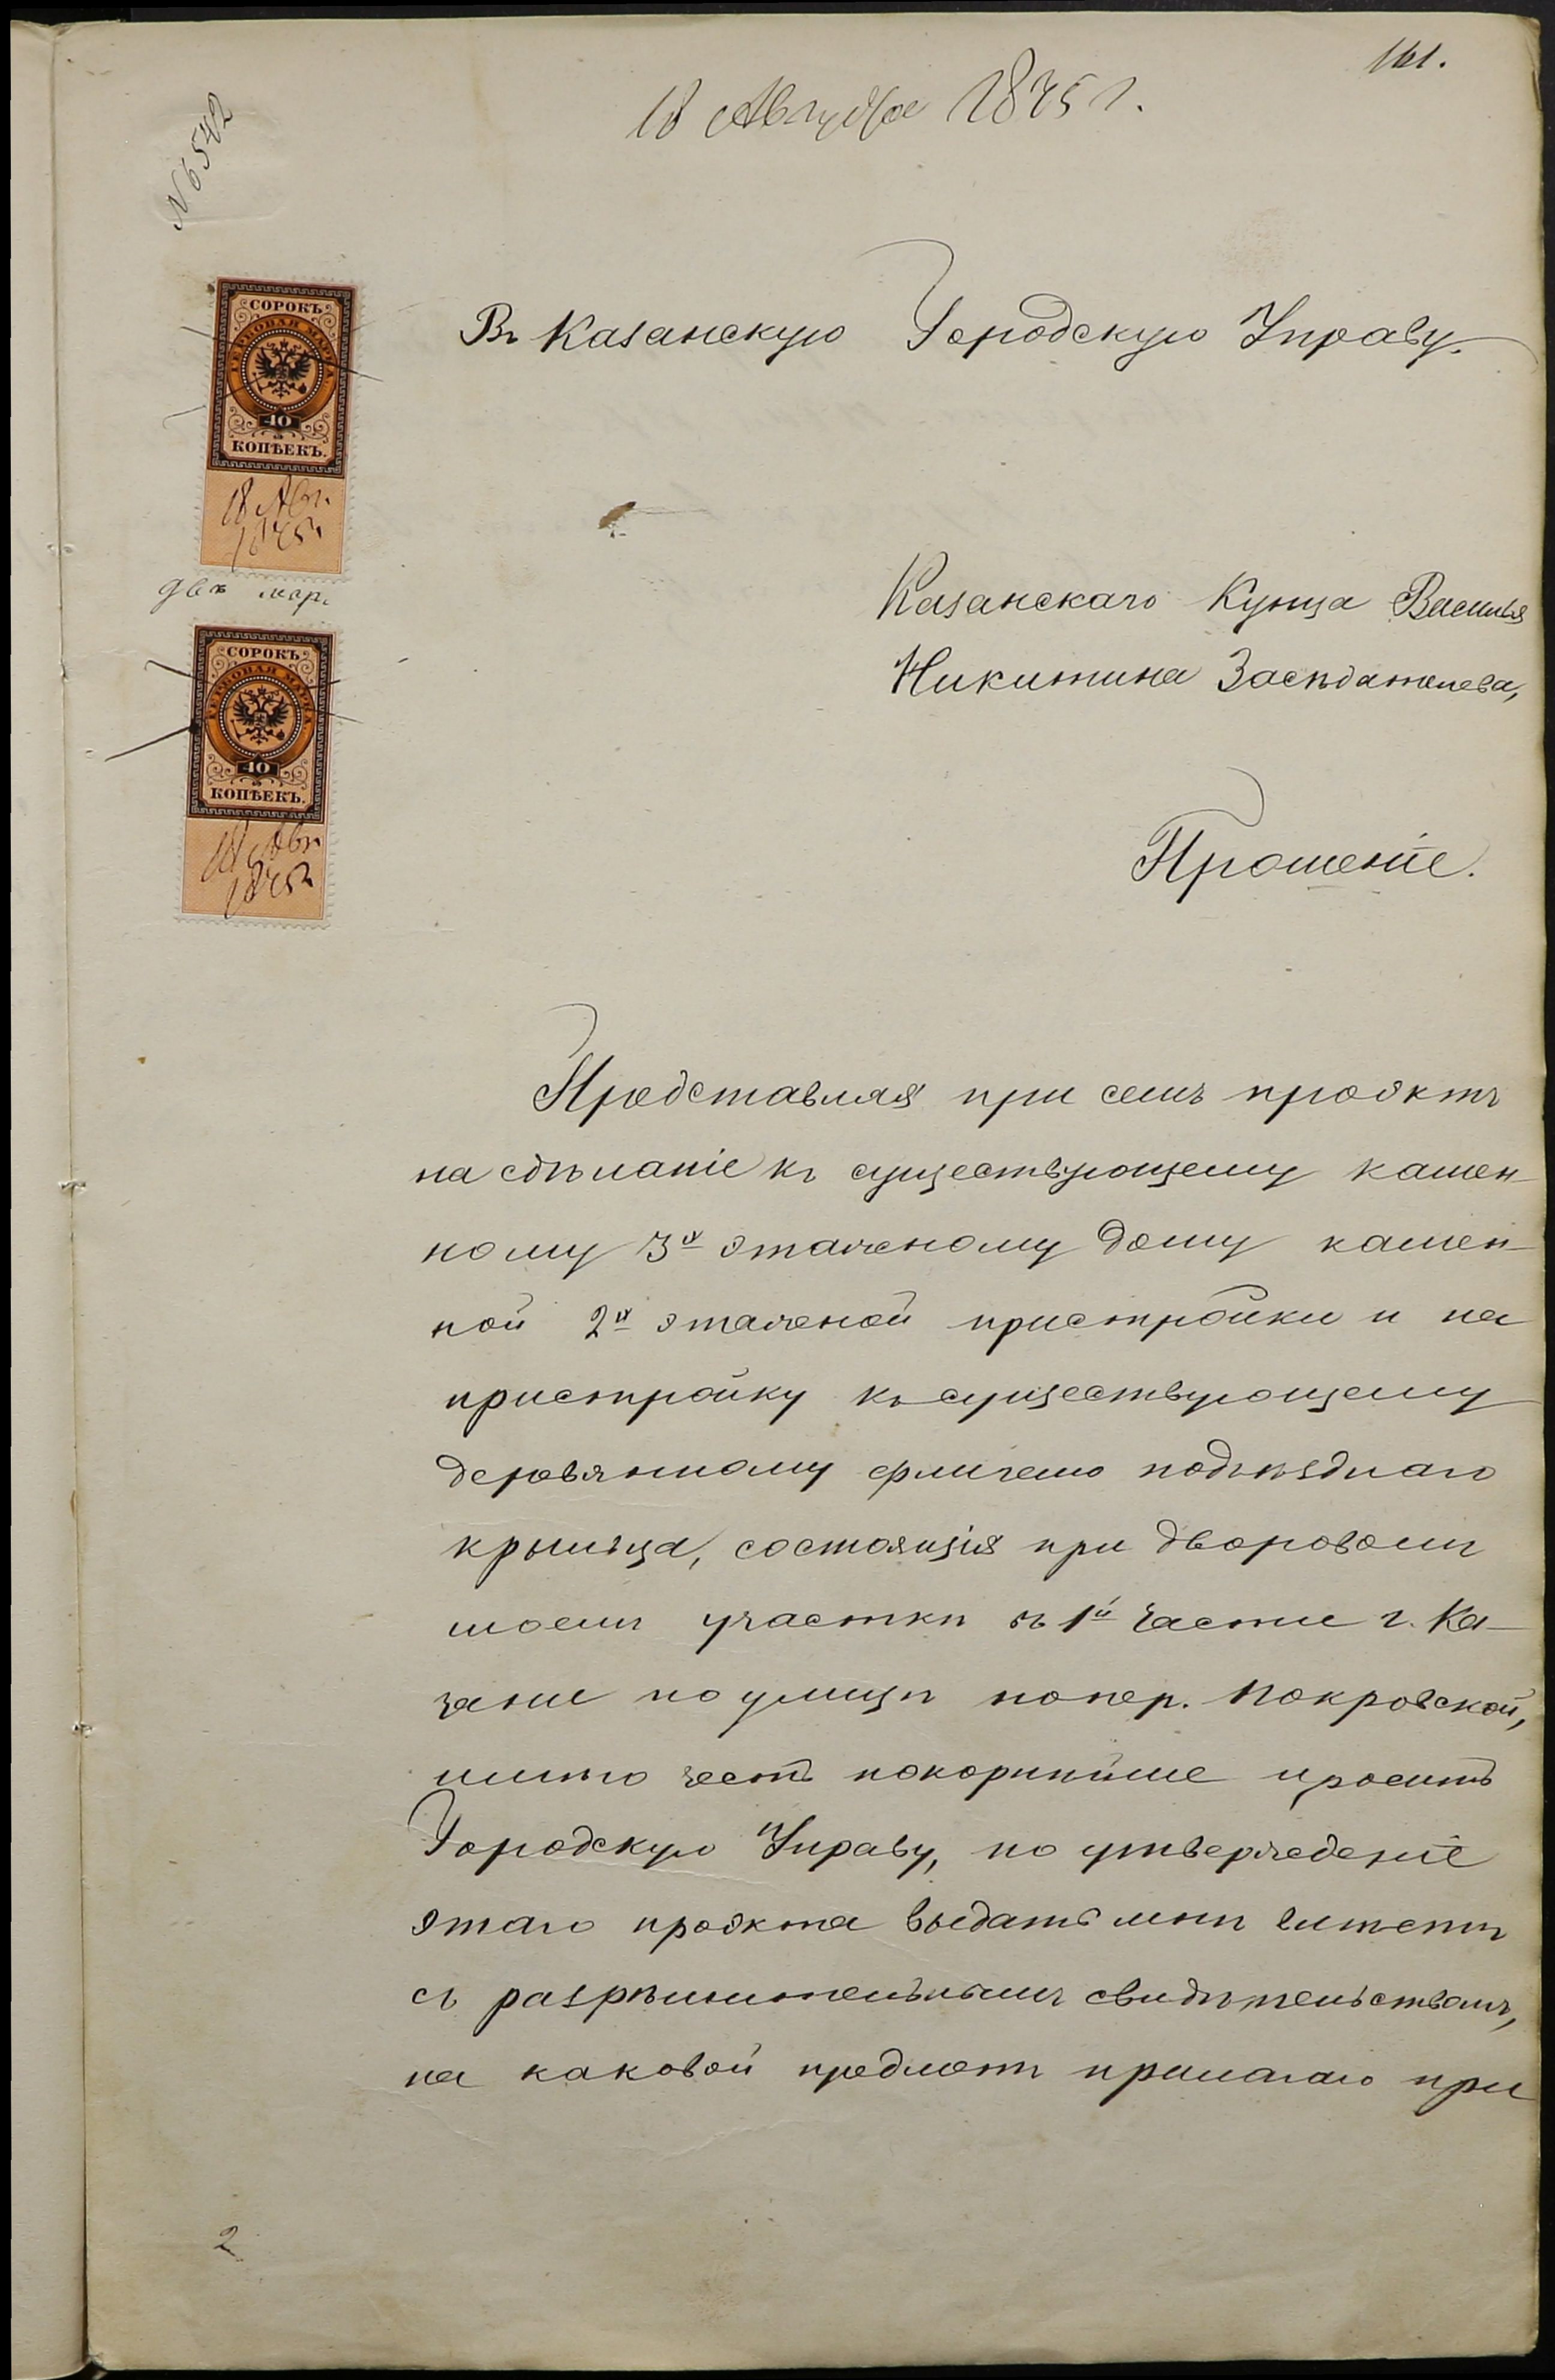 161.
18 Августа 1875 г.
N 6542
Въ Казанскую Городскую Управу.
СОРОКЪ
ГЕРБОВАЯ МАРКА
40
КОПѢЕКЪ.
18 Авг.
1875 г
двѣ мар.
СОРОКЪ
ГЕРБОВАЯ МАРКА
40
КОПѢЕКЪ.
18 Авг
1875 г
Казанскаго Купца Василья
Никитина Засѣдателева,
Прошеніе.
Представляя при семъ проэктъ
на сдѣланіе къ существующему камен-
ному 3х этажному дому камен-
ной 2х этажной пристройки и на
пристройку къ существующему
деревянному флигелю подъѣзднаго
крыльца, состоящія при дворовомъ
моемъ участкѣ въ 1й части г. Ка-
зани по улицѣ попер. Покровской,
имѣю честь покорнѣйше просить
Городскую Управу, по утвержденіе
этаго проэкта выдать мнѣ билетъ
съ разрѣшительнымъ свидѣтельствомъ,
на каковой предметъ прилагаю при
2